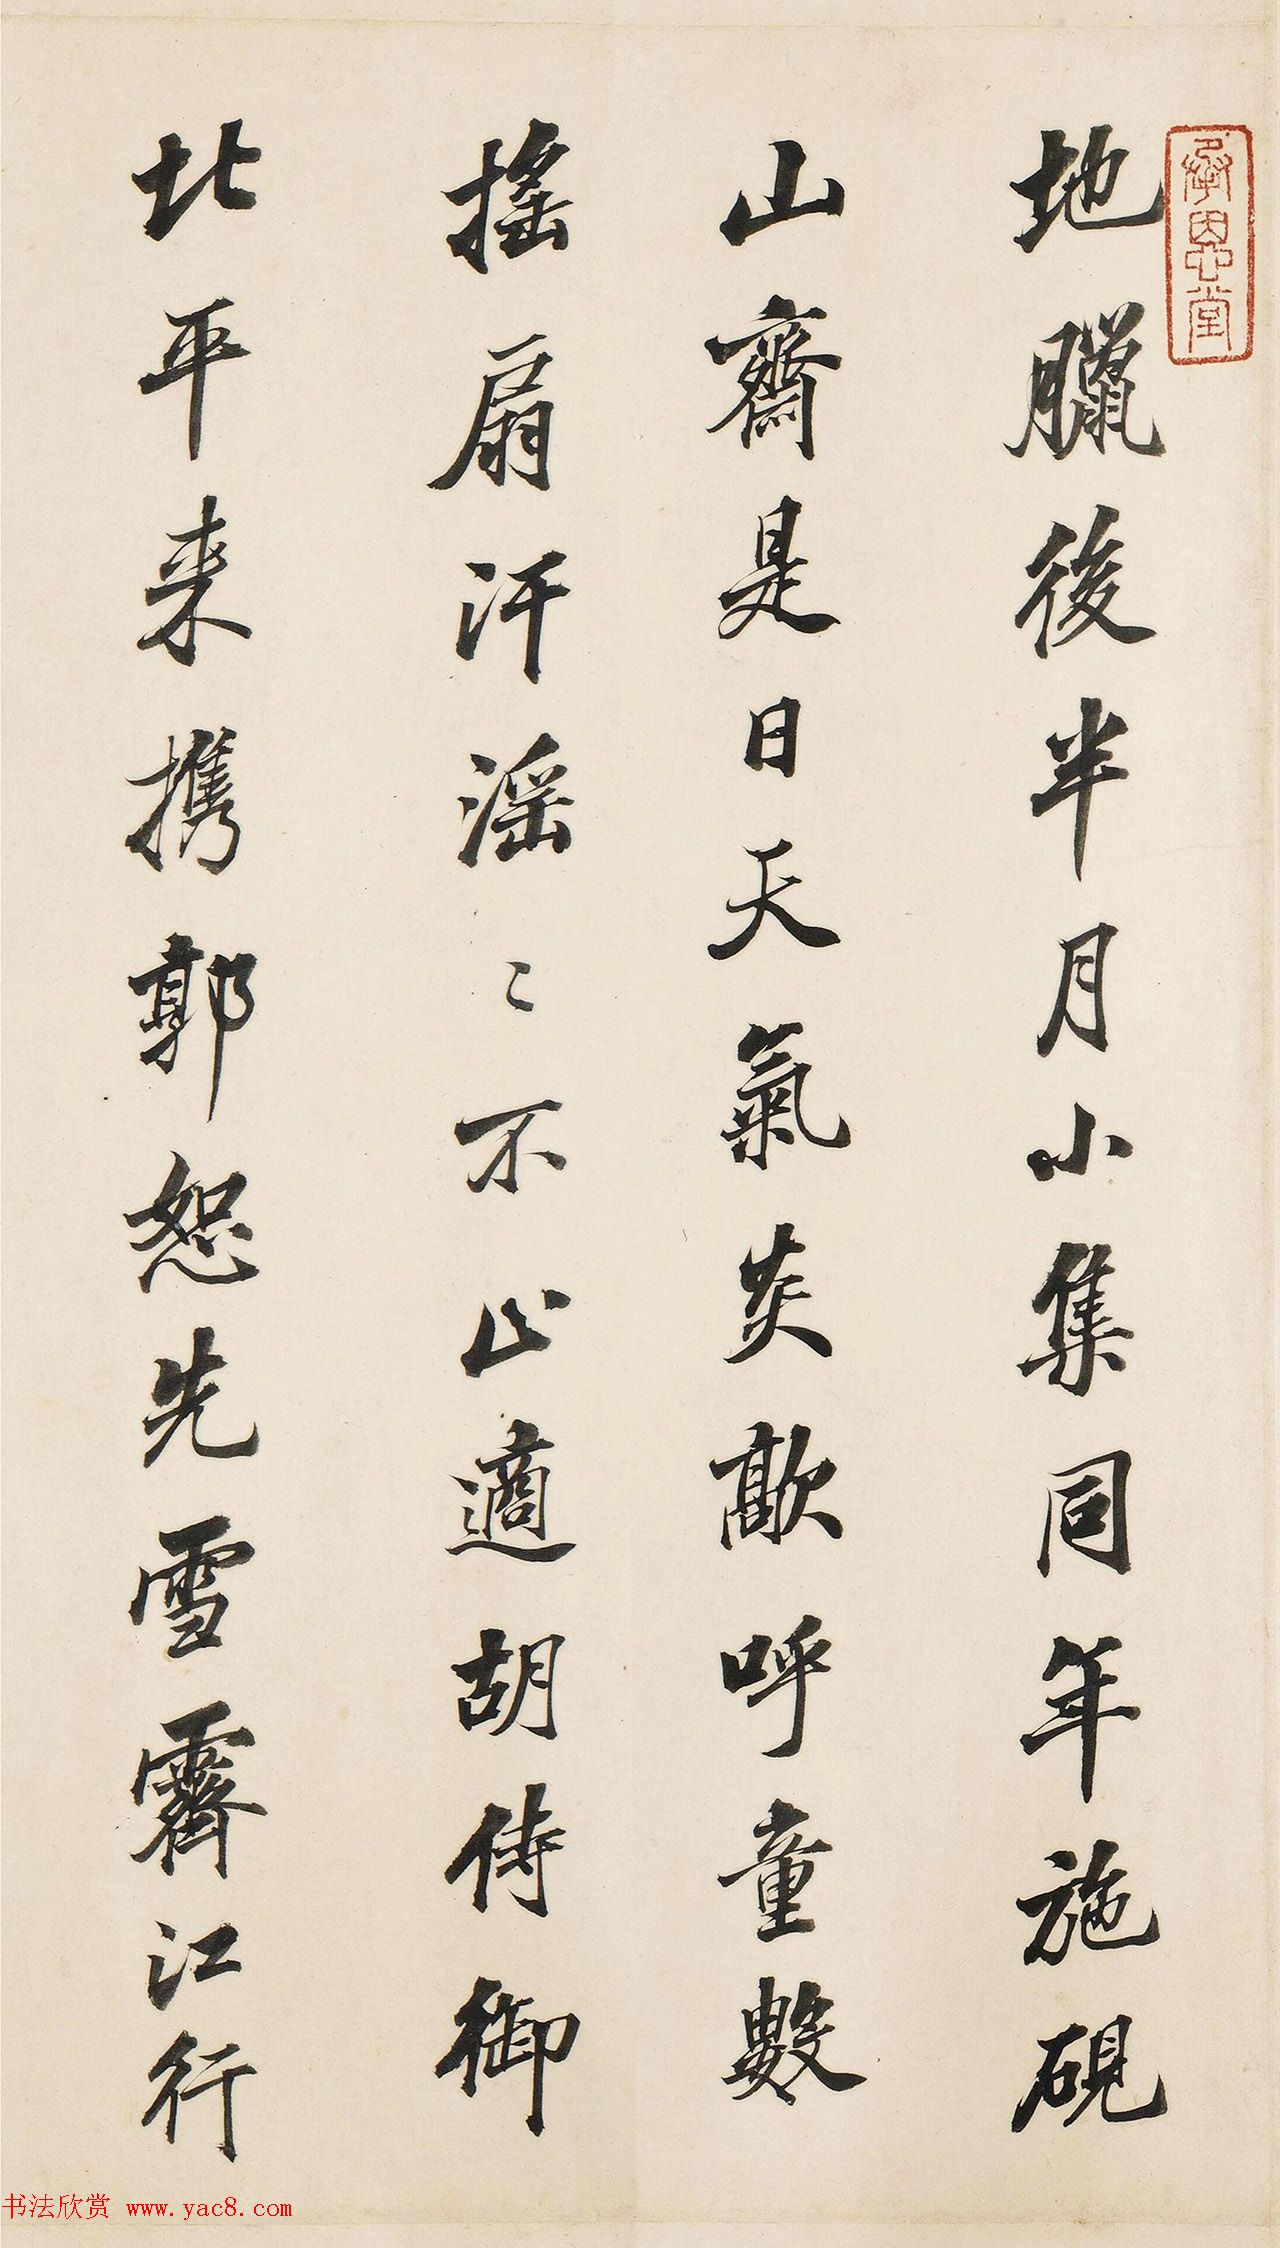 地臘後半月小集同年施硯
山齋是日天氣炎歊呼童數
搖扇汗滛〻不止適胡侍御
北平来攜郭恕先雪霽江行
承恩堂
书法欣赏 www.yac8.com